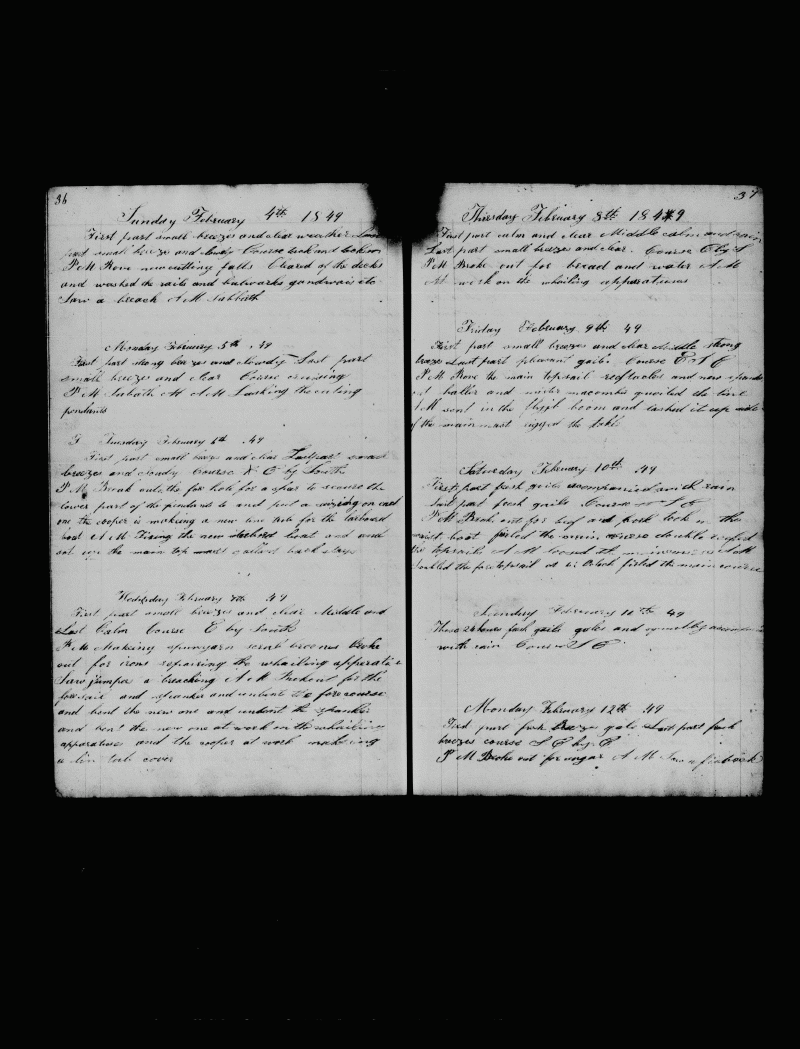 36
Sunday February 4th 1849
First part small breezes and clear weather
part small breeze and cloudy Course and
P M Rove new cutting falls Cleared of the decks
and washed the rails and bulworks gondways etc
Saw a breach A M Sabbith
Monday February 5th . 49
First part strong breezes and cloudy Last part
small breezes and clear Course cruising
P M Sabath At A M Lashing the cuting
pendants
T Tuesday February 6th . 49
First part small breezes and clear Last part small
breezes and cloudy Course E by South
P M Break out the fox hole for a spar to secure the
lower part of the pendants to and put a on each
one the cooper is making a new line tub for the larboard
boat A M Fixing the new boat and and
set up the main top backstays
Wednesday February 7th . 49
First part small breezes and clear Middle and
Last Calm Course E by South
P M Making spunyarn scrub brooms Broke
out for irons repairing the whaleing apparate
Saw jumpa a breaching A M Brokout for the
foresail and spanker and unbent the fore course
and bent the new one and unbent the spanker
and bent the new one at work on the whaleing
apparatus and the cooper at work making
a lin tub cover
37
Thursday February 8th 1849
First part calm and clear Middle calm and rain
Last part small breezes and clear. Course E by S
P M Broke out for bread and water A M
At work on the whaling apparatus
Friday February 9th 49
First part small breezes and clear Middle strong
breeze Last part pleasant gails Course E S E
P M Rove the main topsail reeftacles and new spanker
halter and quoiled the line
A M sent in the flyjib boom and lashed it up
of the mainmast rigged the
Saturday February 10th . 49
First part fresh gails accompanied with rain
last part fresh gails Course S E
P M Break out for beef and pork took in the
waist boat furled the main course double reefed
the topsails A M A M
Doubled the foretopsail at 6 Oclock furled the main course
Sunday February 11th 49
These 24 hours fresh gails and squally accompanied
with rain Course S E
Monday February 12th . 49
First part fresh gale Last part fresh
breezes course S E by E
P M Broke out for sugar A M Saw a finback